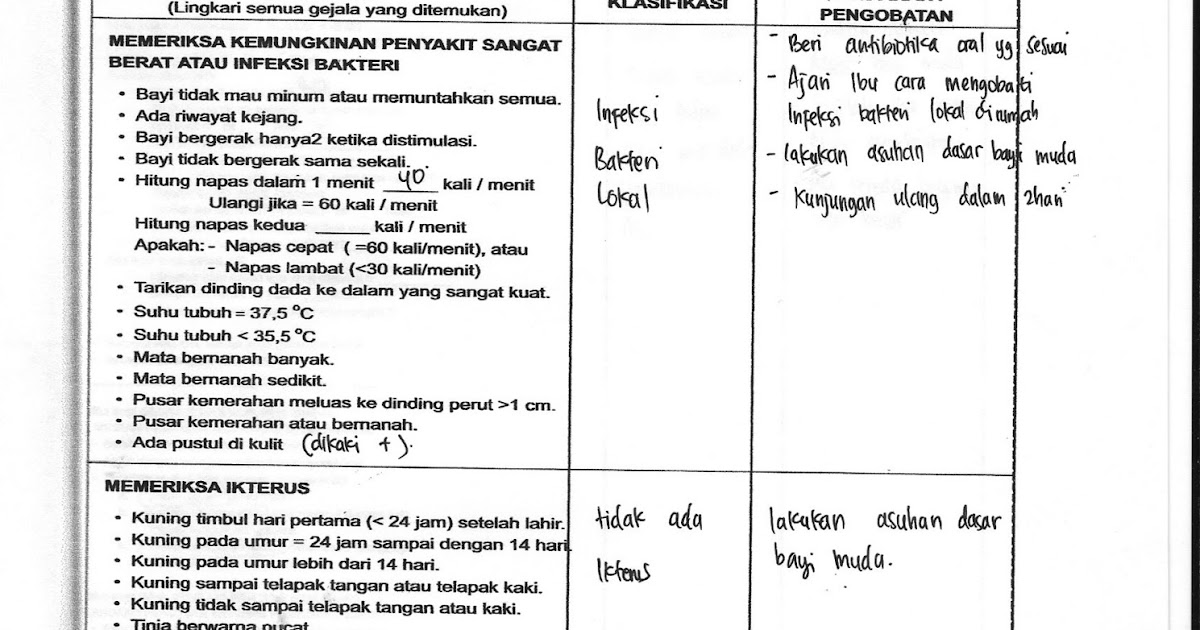 (Lingkari semua gejala yang ditemukan)
KLASIFIKASI
PENGOBATAN
MEMERIKSA KEMUNGKINAN PENYAKIT SANGAT
BERAT ATAU INFEKSI BAKTERI
• Bayi tidak mau minum atau memuntahkan semua.
• Ada riwayat kejang.
• Bayi bergerak hanya2 ketika distimulasi.
• Bayi tidak bergerak sama sekali.
• Hitung napas dalam 1 menit 40 kali / menit
Ulangi jika = 60 kali / menit
Hitung napas kedua ______ kali / menit
Apakah: - Napas cepat ( =60 kali/menit), atau
- Napas lambat (<30 kali/menit)
• Tarikan dinding dada ke dalam yang sangat kuat.
• Suhu tubuh = 37,5 °C
• Suhu tubuh < 35,5 °C
• Mata bernanah banyak.
• Mata bernanah sedikit.
• Pusar kemerahan meluas ke dinding perut >1 cm.
• Pusar kemerahan atau bernanah.
• Ada pustul di kulit (dikaki +).
Infeksi
Bakteri
Lokal
- Beri antibiotika oral yg sesuai
- Ajari Ibu cara mengobati
Infeksi bakteri lokal dirumah
- lakukan asuhan dasar bayi muda
- Kunjungan ulang dalam 2hari
MEMERIKSA IKTERUS
• Kuning timbul hari pertama (< 24 jam) setelah lahir.
• Kuning pada umur = 24 jam sampai dengan 14 hari.
• Kuning pada umur lebih dari 14 hari.
• Kuning sampai telapak tangan atau telapak kaki.
• Kuning tidak sampai telapak tangan atau kaki.
• Tinja berwarna pucat
tidak ada
Ikterus
lakukan asuhan dasar
bayi muda.